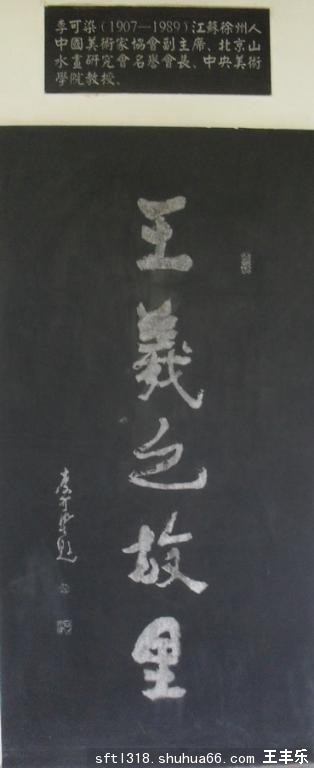 李可染(1907—1989)江蘇徐州人
中國美術家協會副主席、北京山
水畫研究會名譽會長、中央美術
學院教授。
王羲之故里
李可染題
sftl318.shuhua66.com 王丰乐